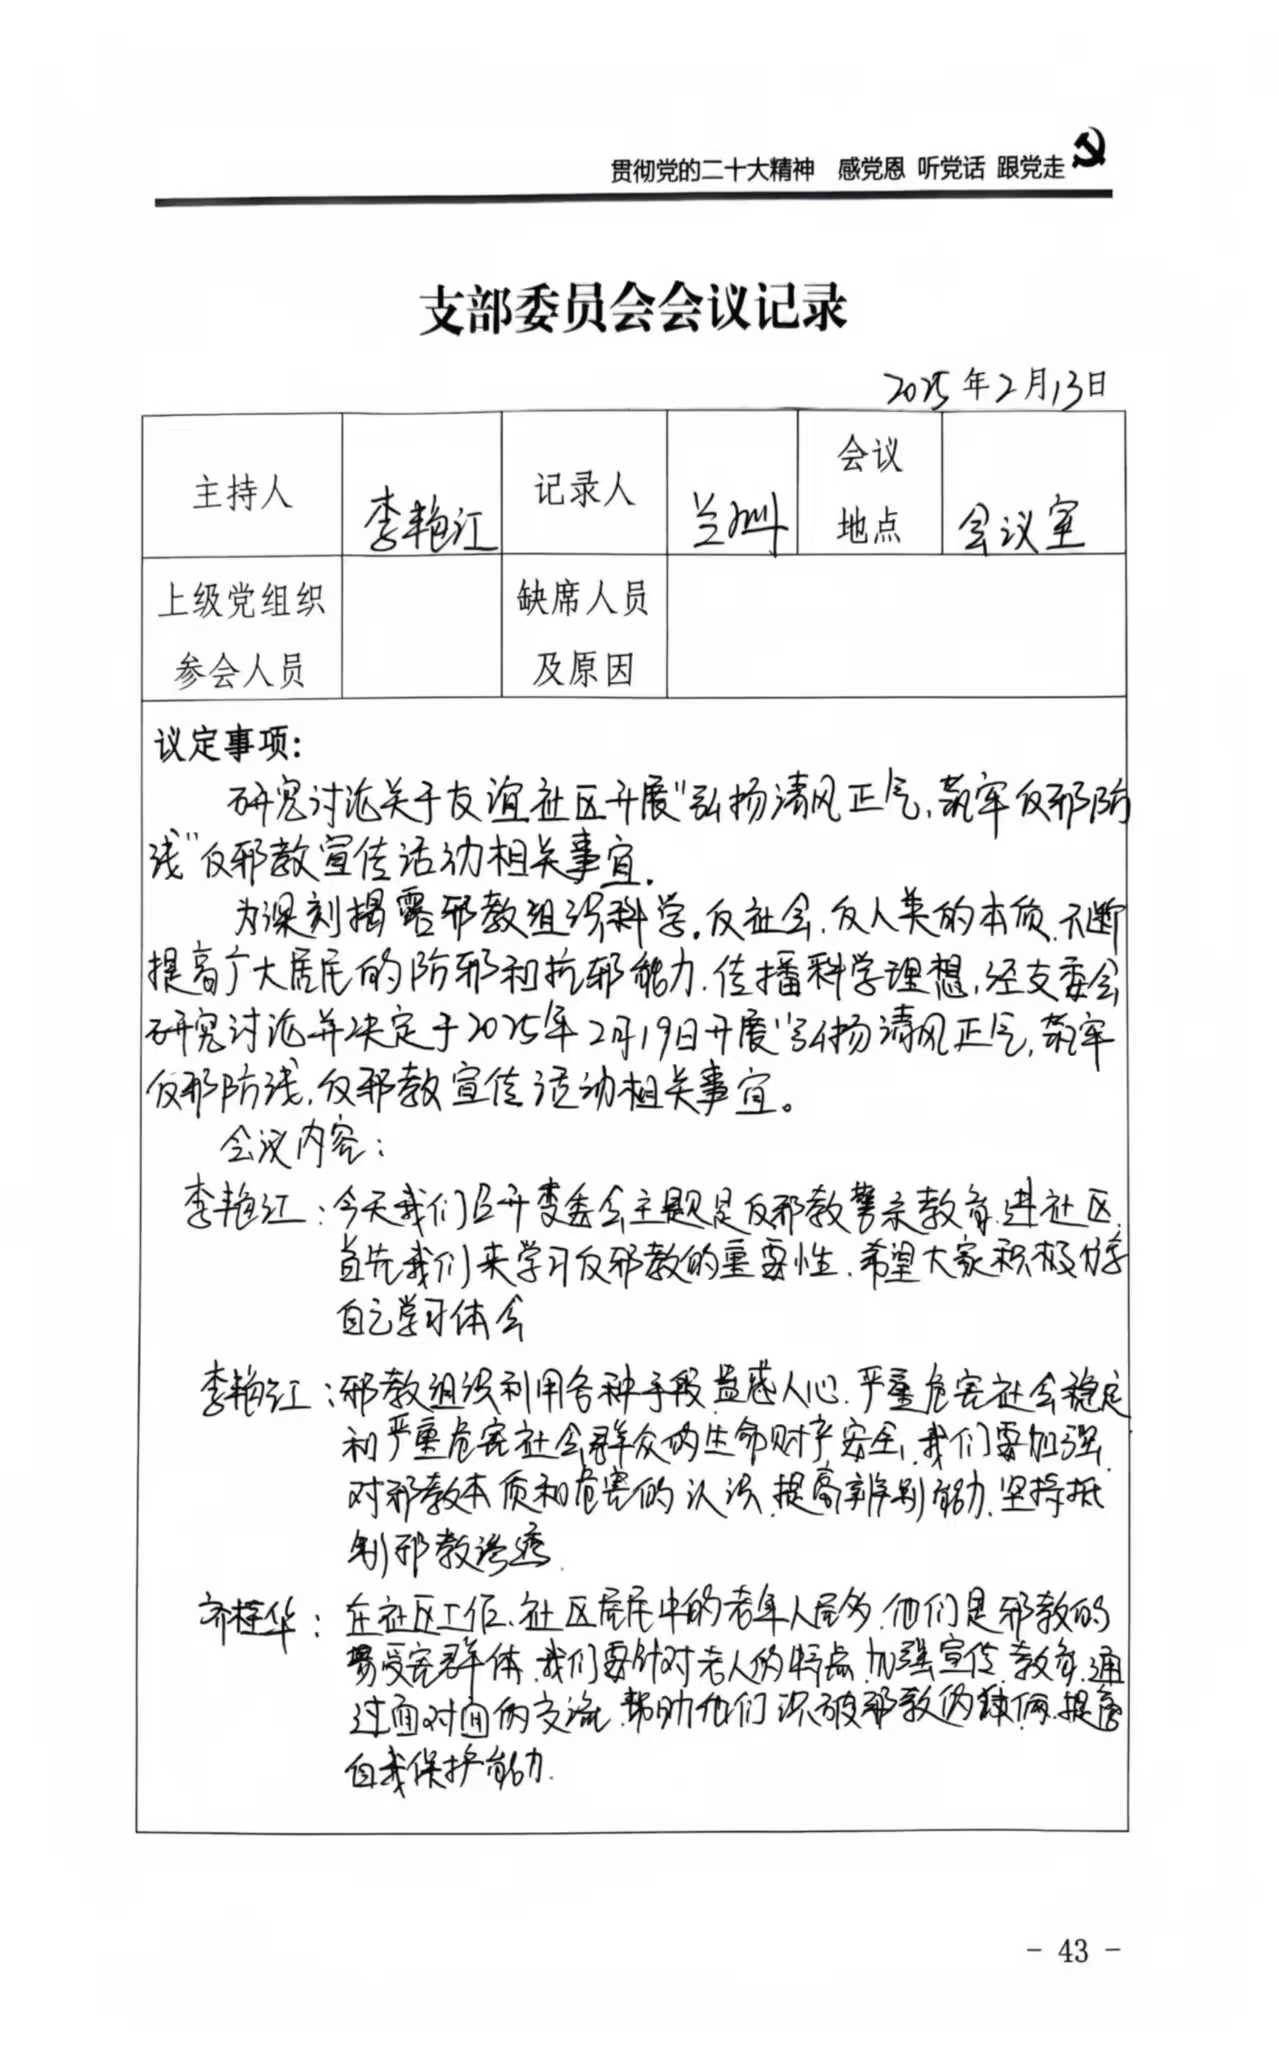 贯彻党的二十大精神 感党恩 听党话 跟党走
支部委员会会议记录
2025年2月13日
主持人 李艳江 记录人 兰 会议地点 会议室
上级党组织参会人员 缺席人员及原因
议定事项：
研究讨论关于友谊社区开展“弘扬清风正气，筑牢反邪防
线”反邪教宣传活动相关事宜。
为深刻揭露邪教组织科学。反社会，反人类的本质，不断
提高广大居民的防邪和抗邪能力，传播科学理想，经支委会
研究讨论并决定于2025年2月19日开展“弘扬清风正气，筑牢
反邪防线，反邪教宣传活动相关事宜。
会议内容：
李艳江：今天我们召开支委会主题是反邪教警示教育进社区，
首先我们来学习反邪教的重要性，希望大家积极分享
自己学习体会
李艳江：邪教组织利用各种手段蛊惑人心，严重危害社会稳定
和严重危害社会群众的生命财产安全，我们要加强
对邪教本质和危害的认识，提高辨别能力，坚持抵
制邪教渗透.
齐桂华：在社区工作，社区居民中的老年人居多，他们是邪教的
易受害群体，我们要针对老人的特点，加强宣传教育，通
过面对面的交流，帮助他们识破邪教伪 ，提高
自我保护能力.
- 43 -